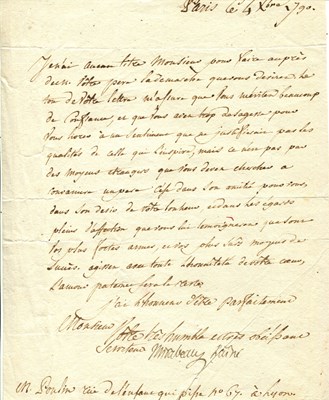 Paris le 4 Xbre 790.
Je n'ai aucun titre Monsieur pour faire auprès
de M. Votre pere la demarche que vous desirez. Le
ton de Votre lettre m'assure que vous meritez beaucoup
de Confiance, et que vous avez trop de sagesse pour
vous livrer à un sentiment que ne justifieroit pas les
qualités de celle qui l'inspire; mais ce n'est pas par
des moyens etrangers que vous devez chercher à
un pere. C'est dans son amitié pour vous,
dans son desir de Votre bonheur et dans les
pleins d'affection que vous lui temoignerez que sont
vos plus fortes armes, et vos plus surs moyens de
succès. agissez avec toute l'honnêteté de votre coeur,
L'amour paternel fera le reste.
J'ai l'honneur d'être parfaitement
Monsieur
Votre très humble et très obéissant
Serviteur Mirabeau
M. rue de l'enfant qui pisse no 67. à Lyon.